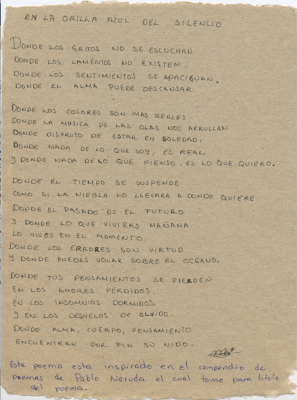 EN LA ORILLA AZUL DEL SILENCIO
DONDE LOS GRITOS NO SE ESCUCHAN
DONDE LOS LAMENTOS NO EXISTEN.
DONDE LOS SENTIMIENTOS SE APACIGUAN.
DONDE EL ALMA PUEDE DESCANSAR.
DONDE LOS COLORES SON MAS REALES
DONDE LA MUSICA DE LAS OLAS NOS ARRULLAN
DONDE DISFRUTO DE ESTAR EN SOLEDAD.
DONDE NADA DE LO QUE SOY, ES REAL
Y DONDE NADA DE LO QUE PIENSO, ES LO QUE QUIERO.
DONDE EL TIEMPO SE SUSPENDE
COMO SI LA NIEBLA LO LLEVARA A DONDE QUIERE
DONDE EL PASADO ES EL FUTURO
Y DONDE LO QUE VIVIRAS MAÑANA
LO VIVES EN EL MOMENTO.
DONDE LOS ERRORES SON VIRTUD
Y DONDE PUEDES VOLAR SOBRE EL OCÉANO.
DONDE TUS PENSAMIENTOS SE PIERDEN
EN LOS AMORES PERDIDOS.
EN LOS INSOMNIOS DORMIDOS
Y EN LOS DESVELOS DE OLVIDO.
DONDE ALMA, CUERPO, PENSAMIENTO
ENCUENTRAN POR FIN SU NIDO.
Este poema esta inspirado en el compendio de
poemas de Pablo Neruda el cual tome para titulo
del poema.